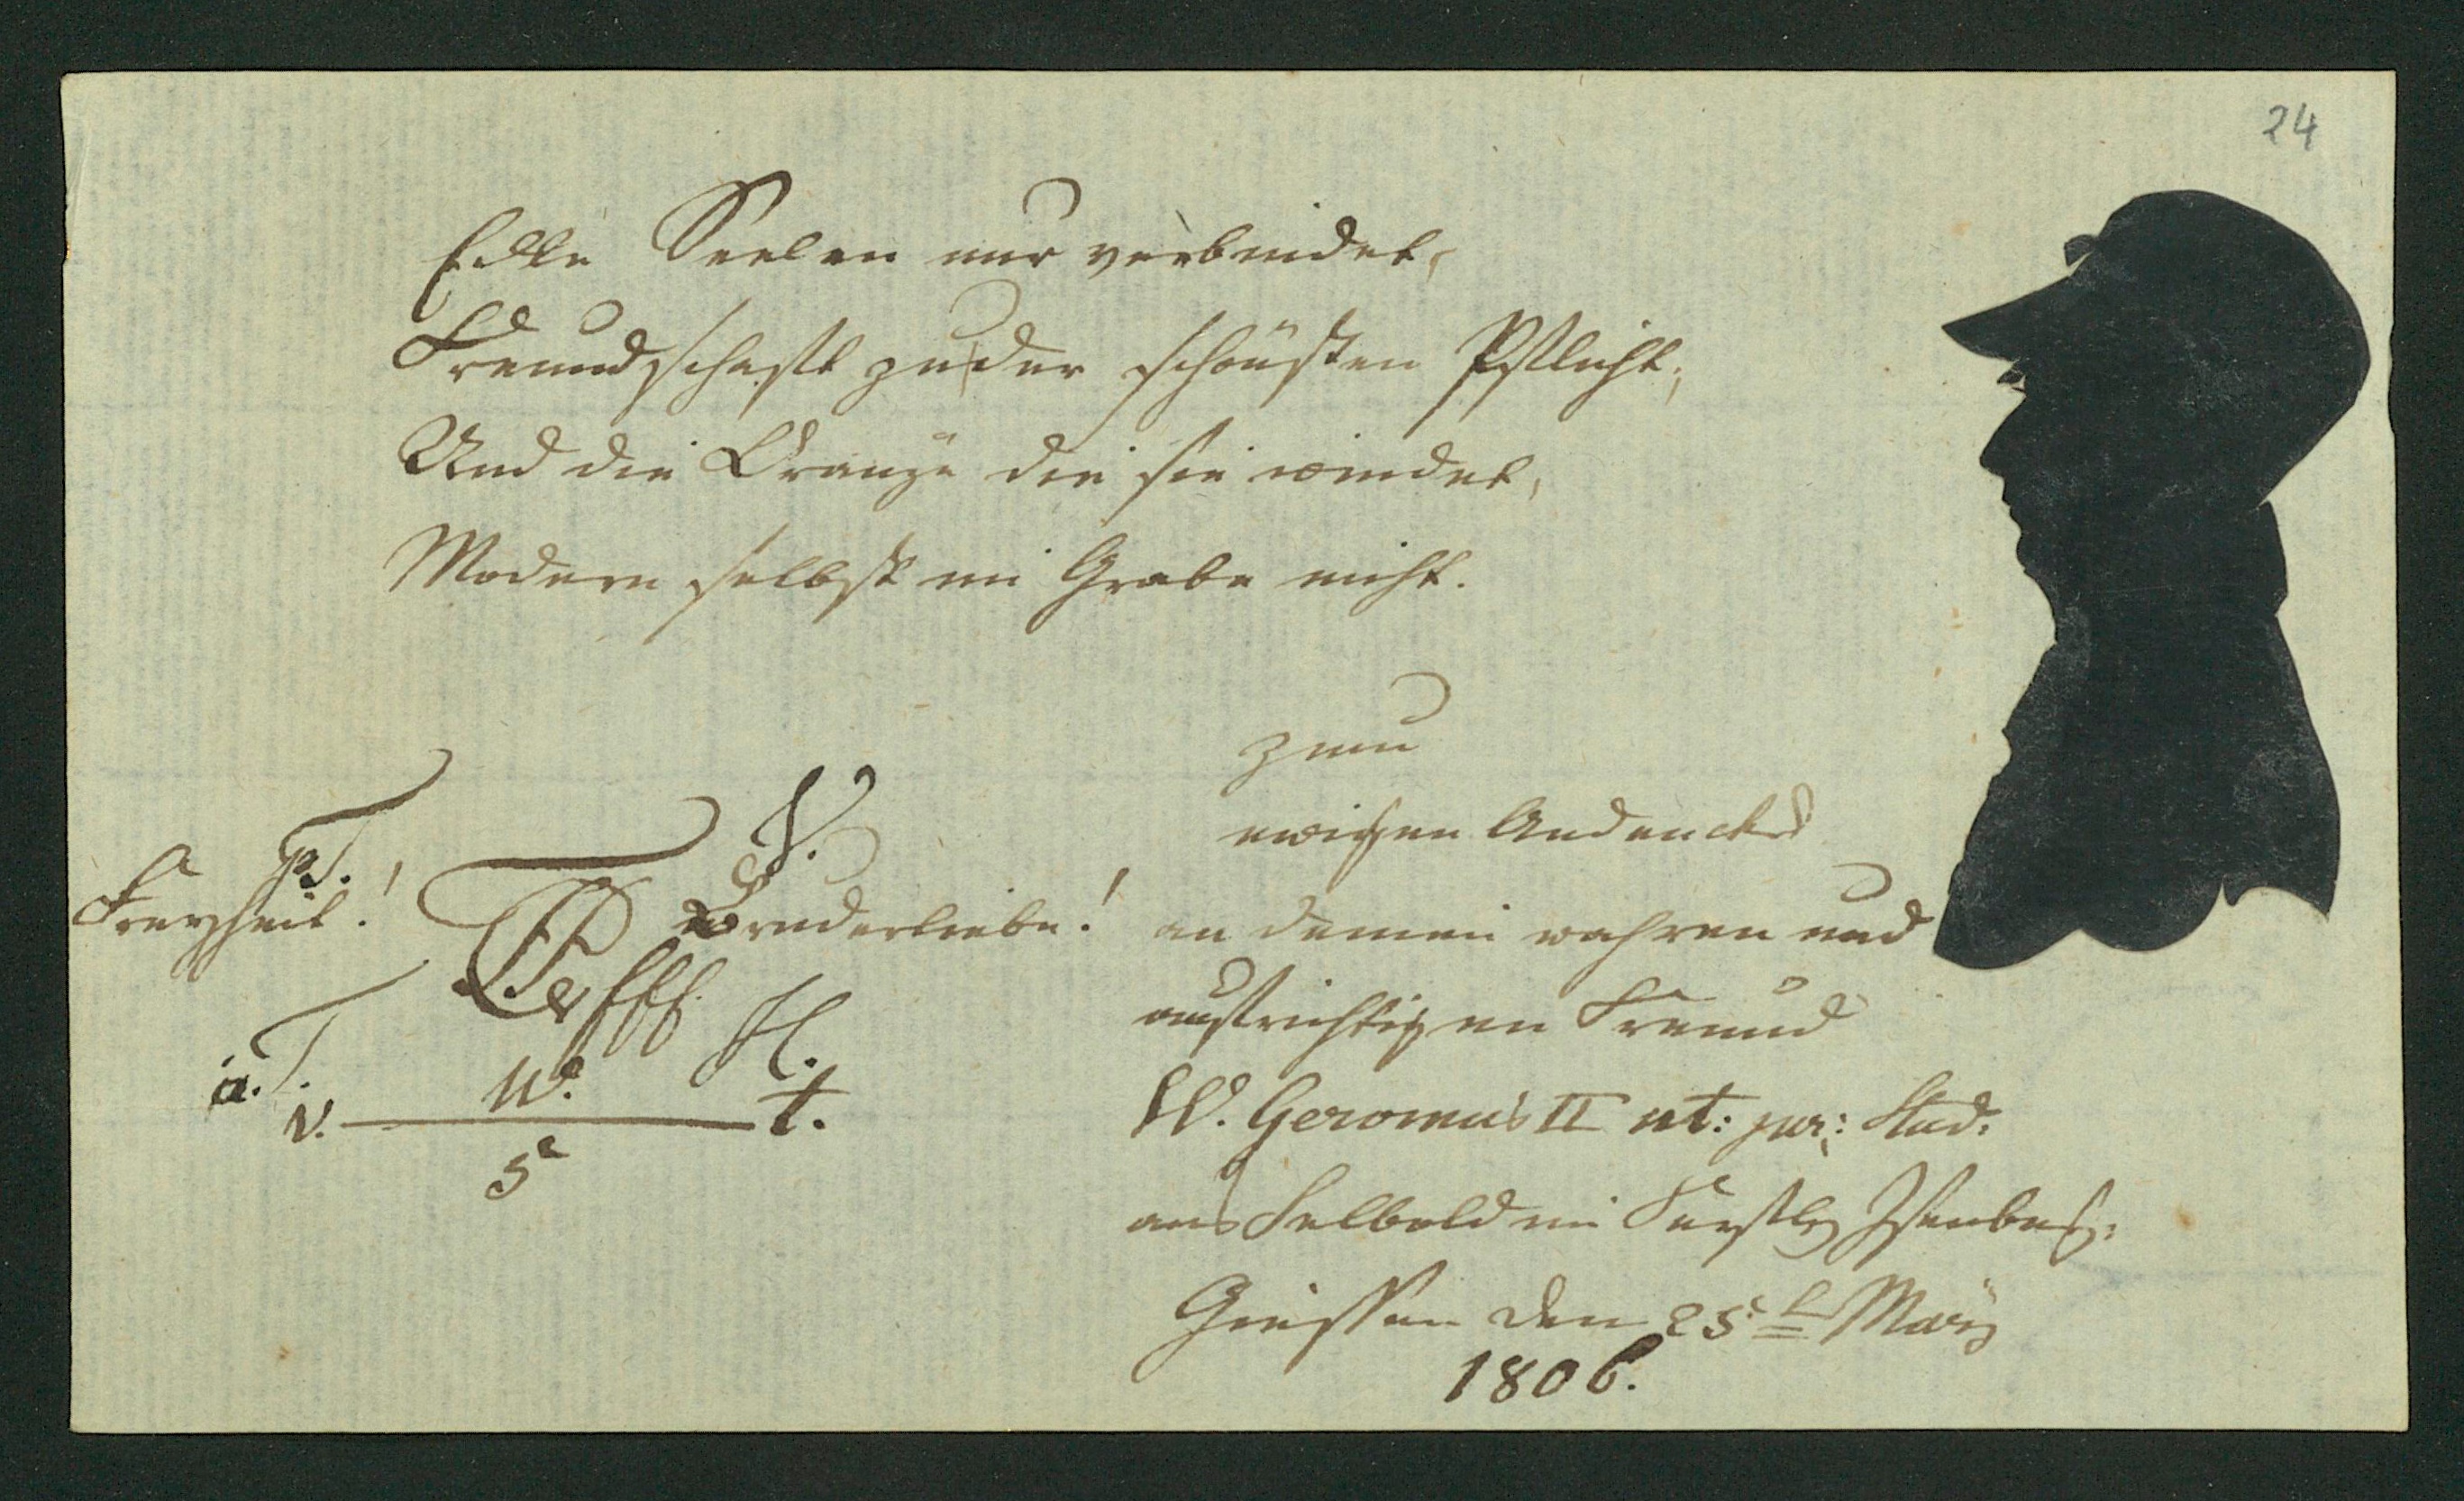 24
Edle Seelen nur verbindet,
Freundschaft zu der schönsten Pflicht;
Und die Kränze die sie windet,
Modern selbst im Grabe nicht.
Freyheit!
Bruderliebe!
V.
H.
a. T.
W.
v. t.
5
zum
ewigen Andencken
an deinen wahren und
aufrichtigen Freund
W. Geromus II ut: jur: Stud:
aus Selbold im Fürstl Isenburg:
Giessen den 25t März
1806.